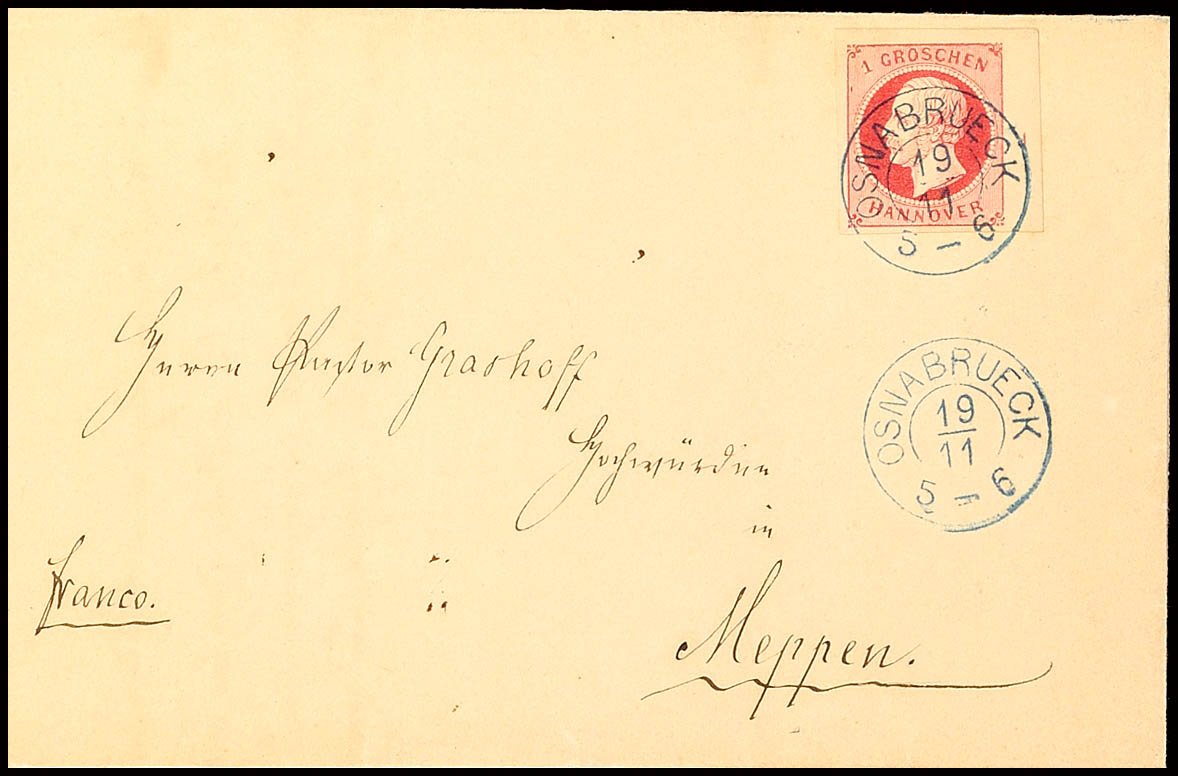 1 GROSCHEN
HANNOVER
OSNABRUECK
19
11
5 - 6
Herrn Pastor Grashoff
Hochwürden
in
Meppen.
franco.
OSNABRUECK
19
11
5 - 6